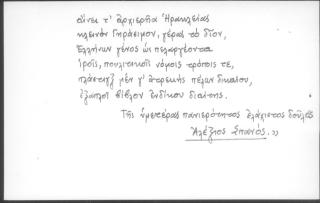 αἰνεῖ τ' ἀρχιερῆα Ἡρακλείας
κλεινὸν Γηράσιμον, γέρας τὸ δῖον,
Ἑλλήνων γένος ὡς πελαργέοντα
ἱροῖς, πουλιτικοῖς νόμοις τρόποις τε,
μὲν γ' ἀτρεκὴς πέλων δικαίου,
βίβλον ἐνδίκου διαίτης.
Τῆς ὑμετέρας πανιερότητος ἐλάχιστος δοῦλος
Ἀλέξιος Σπανός.»